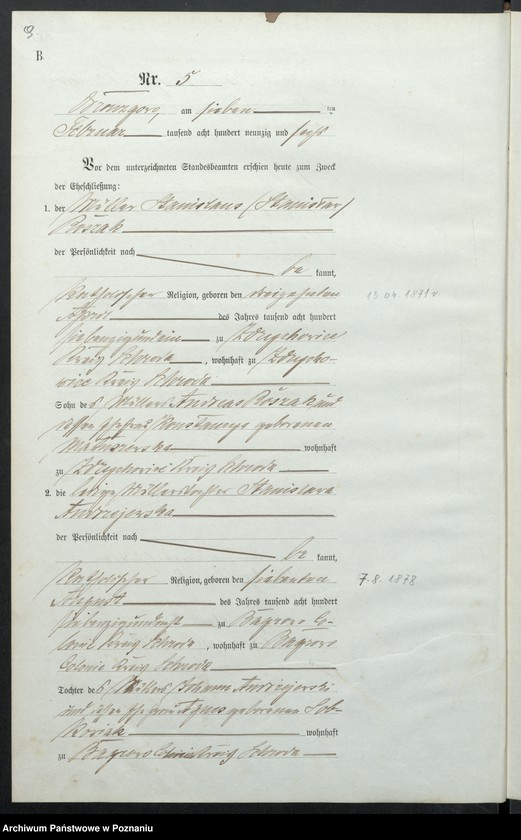 9.
B.
Nr. 5
am sieben ten
Februar tausend acht hundert neunzig und sechs
Vor dem unterzeichneten Standesbeamten erschien heute zum Zweck
der Eheschließung:
1. der Müller Stanislaus (Stanisław)
Roszak
der Persönlichkeit nach
be kannt,
katholischer Religion, geboren den dreizehnten
April des Jahres tausend acht hundert
15.04.1871 r.
siebenzig und ein zu Zdrychowice
Kreis Schroda, wohnhaft zu Zdrycho-
wice Kreis Schroda
Sohn des Müllers Andreas Roszak und
dessen Ehefrau geborenen
wohnhaft
zu Kreis Schroda
2. die ledige Müllertochter Stanislava
Andrzejewska
der Persönlichkeit nach
be kannt,
katholischer Religion, geboren den siebenten
7.8.1878
August des Jahres tausend acht hundert
siebenzig und acht zu Bagrowo Co-
lonie Kreis Schroda, wohnhaft zu Bagrowo
Colonie Kreis Schroda
Tochter des Müllers Johann Andrzejewski
und dessen Ehefrau Agnes geborenen Sob-
kowiak wohnhaft
zu Bagrowo Colonie Kreis Schroda
Archiwum Państwowe w Poznaniu